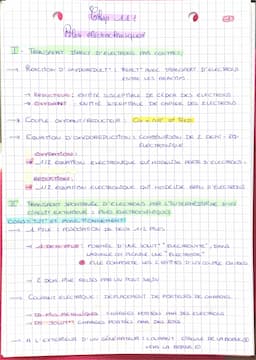 Piles électrochimiques
I - TRANSFERT DIRECT D'ELECTRONS PAR CONTACT.
→ REACTION D'OXYDOREDUCT° : REACT° AVEC TRANSFERT D'ELECTRONS
ENTRE LES REACTIFS
→ REDUCTEUR : ENTITE SUSCEPTIBLE DE CEDER DES ELECTRONS
→ OXYDANT : ENTITE SUSCEPTIBLE DE CAPTER DES ELECTRONS
→ COUPLE OXYDANT/REDUCTEUR : Ox + ne- = Red
→ EQUATION D'OXYDOREDUCTION : COMBINAISON DE 2 DEMI-EQ
ELECTRONIQUE
OXYDATION :
1/2 EQUATION ELECTRONIQUE QUI MODELISE PERTE D'ELECTRONS.
REDUCTION :
1/2 EQUATION ELECTRONIQUE QUI MODELISE GAIN D'ELECTRONS
II - TRANSFERT SPONTANEE D'ELECTRONS PAR L'INTERMEDIAIRE D'UN
CIRCUIT EXTERIEUR : PILES ELECTROCHIMIQUES
CONSTITUT° ET FONCTIONNEMENT
→ 1 PILE : ASSOCIATION DE DEUX 1/2 PILES
→ 1 DEMI-PILE : FORMEE D'UNE SOLUT° "ELECTROLYTE", DANS
LAQUELLE ON PLONGE UNE "ELECTRODE"
ELLE COMPORTE LES 2 ENTITES D'UN COUPLE OX/RED
→ 2 DEMI PILE RELIEES PAR UN PONT SALIN
→ COURANT ELECTRIQUE : DEPLACEMENT DE PORTEURS DE CHARGES
CHARGES PORTEES PAR DES ELECTRONS
EN SOLUT° CHARGES PORTEES PAR DES IONS
→ A L'EXTERIEUR D'UN GENERATEUR : COURANT CIRCULE DE LA BORNE ⊕
VERS LA BORNE ⊖